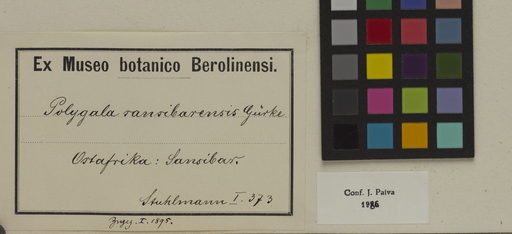 Ex Museo botanico Berolinensi.
Polygala sansibarensis Gürke
Ostafrika: Sansibar.
Stuhlmann I. 373
I. 1895.
Conf. J. Paiva
1986